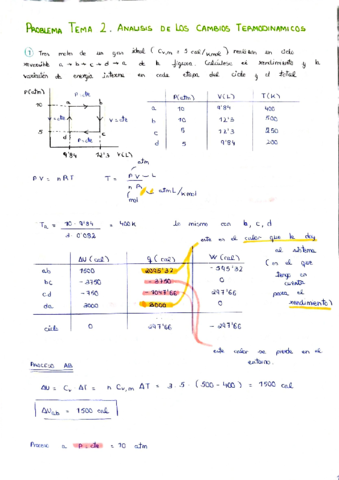 PROBLEMA TEMA 2. ANALISIS DE LOS CAMBIOS TERMODINAMICOS
① Tres moles de un gas ideal (Cv,m = 5 cal/Kmol) realizan un ciclo
reversible a → b → c → d → a de la figura. Calcúlese el rendimiento y la
variación de energía interna en cada etapa del ciclo y el total
P(atm)
10
5
a
b
c
d
P=cte
V=cte
V=cte
P=cte
9'84
12'3
V(L)
P(atm) V(L) T(K)
a 10 9'84 400
b 10 12'3 500
c 5 12'3 250
d 5 9'84 200
atm
PV = nRT
T = PV L
n R
mol
atmL/Kmol
Ta = 10 · 9'84 = 400K
0'082
lo mismo con b, c, d
este es el calor que le doy
al sistema
(es el que
tengo en
cuenta
para el
rendimiento)
ΔU (cal) q (cal) W (cal)
ab 1500 2095'32 -595'32
bc -3750 -3750 0
cd -750 -1047'66 297'66
da 3000 3000 0
ciclo 0 297'66 -297'66
este calor se pierde en el
entorno.
PROCESO AB
ΔU = Cv ΔT = n Cv,m ΔT = 3 · 5 · (500 - 400) = 1500 cal
ΔUab = 1500 cal
Proceso a p = cte = 10 atm